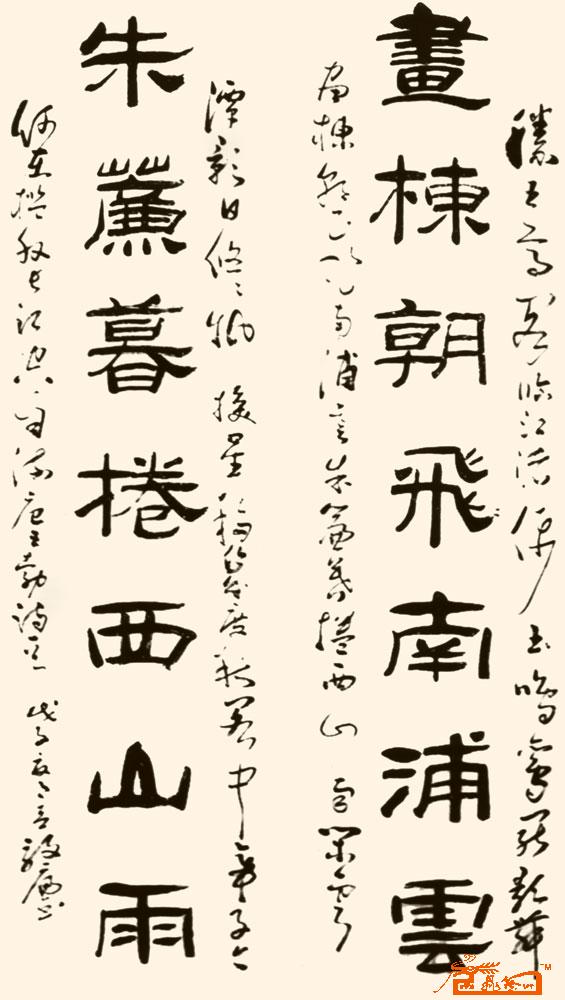 滕王高閣臨江渚佩玉鳴鸞罷歌舞
畫棟朝飛南浦雲
畫棟朝飛南浦雲朱簾暮捲西山雨閒雲
潭影日悠悠物換星移幾度秋閣中帝子今
朱薕暮捲西山雨
何在檻外長江空自流唐王勃詩意 戊子